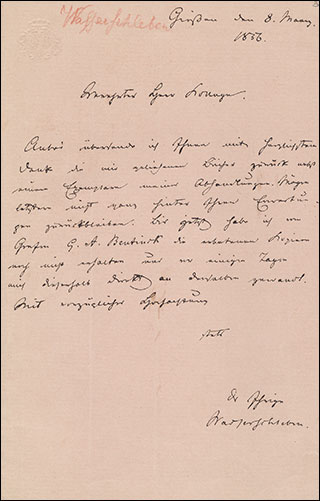 Wasserschleben
Gießen den 8. März
1886.
Verehrter Herr College.
Anbei übersende ich Ihnen mit herzlichstem
Dank die mir geliehenen Bücher zurück nebst
einem Exemplare meiner Abhandlungen. Möge
letztere nicht ganz hinter Ihren Erwartun-
gen zurückbleiben. Bis jetzt habe ich von
Grafen G. A. Bentinck die erbetenen
noch nicht erhalten und vor einigen Tagen
mich dieserhalb direkt an denselben gewandt.
Mit vorzüglicher Hochachtung
stets
der Ihrige
Wasserschleben.